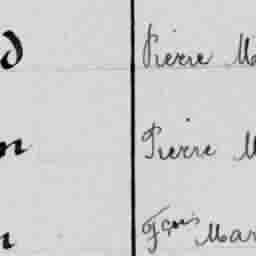 d Pierre Ma
n Pierre M
n Fçois Mar